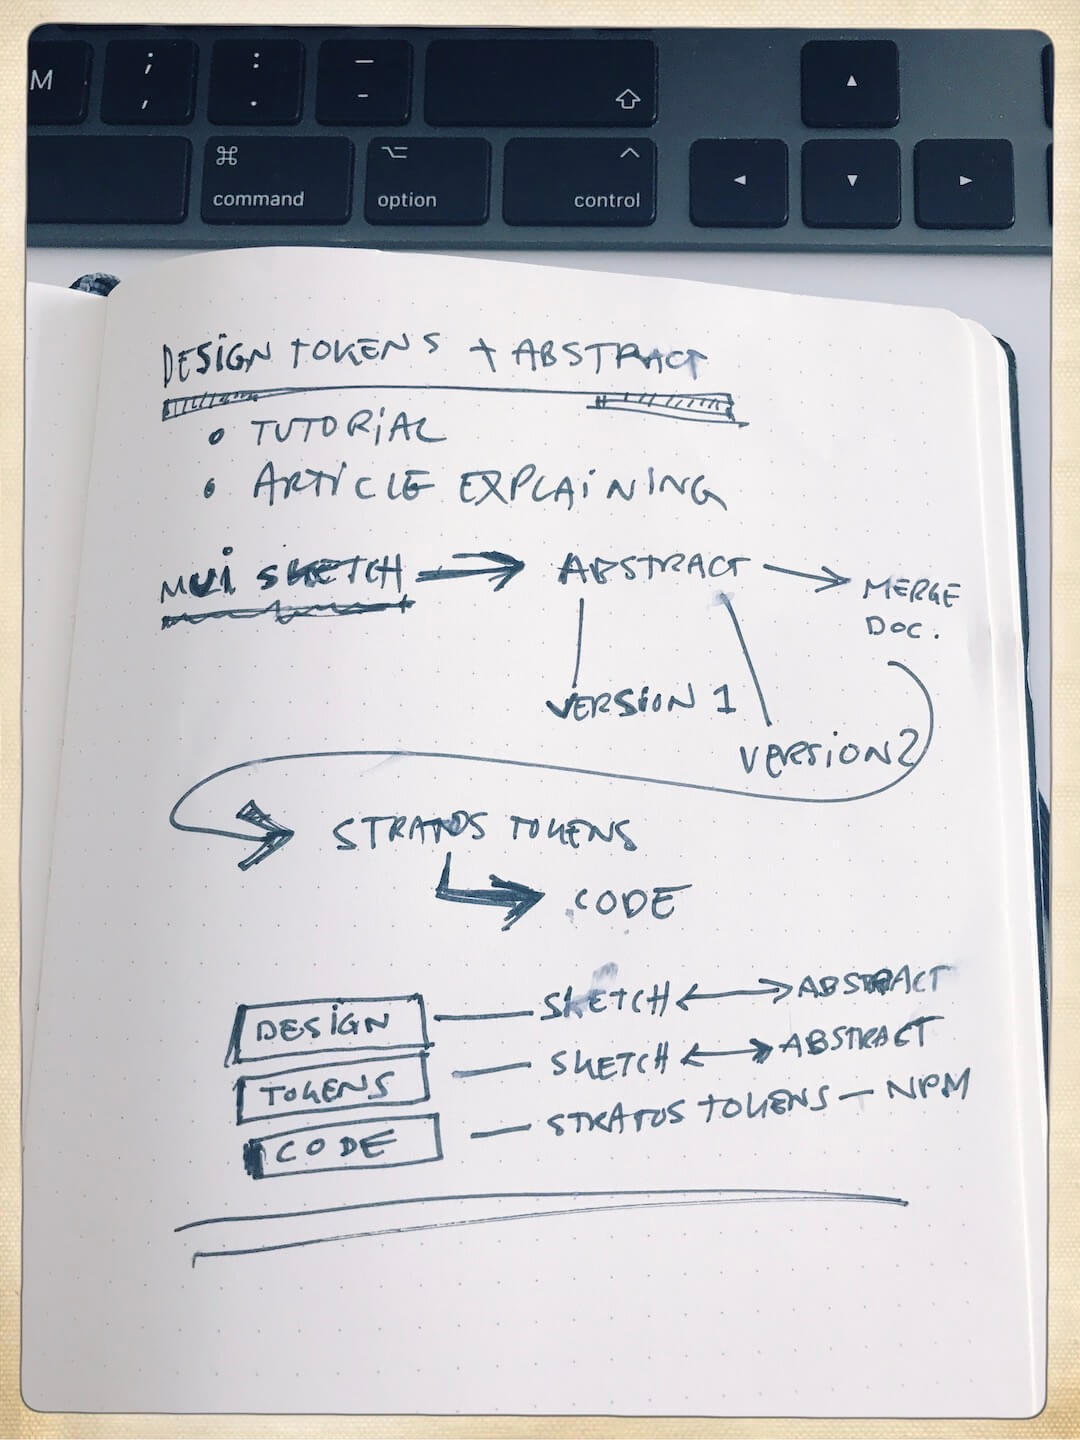 M ; , : . — -
⌘ command ⌥ option ^ control
DESIGN TOKENS + ABSTRACT
• TUTORIAL
• ARTICLE EXPLAINING
MUI SKETCH → ABSTRACT → MERGE
DOC.
VERSION 1
VERSION 2
STRATOS TOKENS
CODE
DESIGN — SKETCH ↔ ABSTRACT
TOKENS — SKETCH ↔ ABSTRACT
CODE — STRATOS TOKENS — NPM